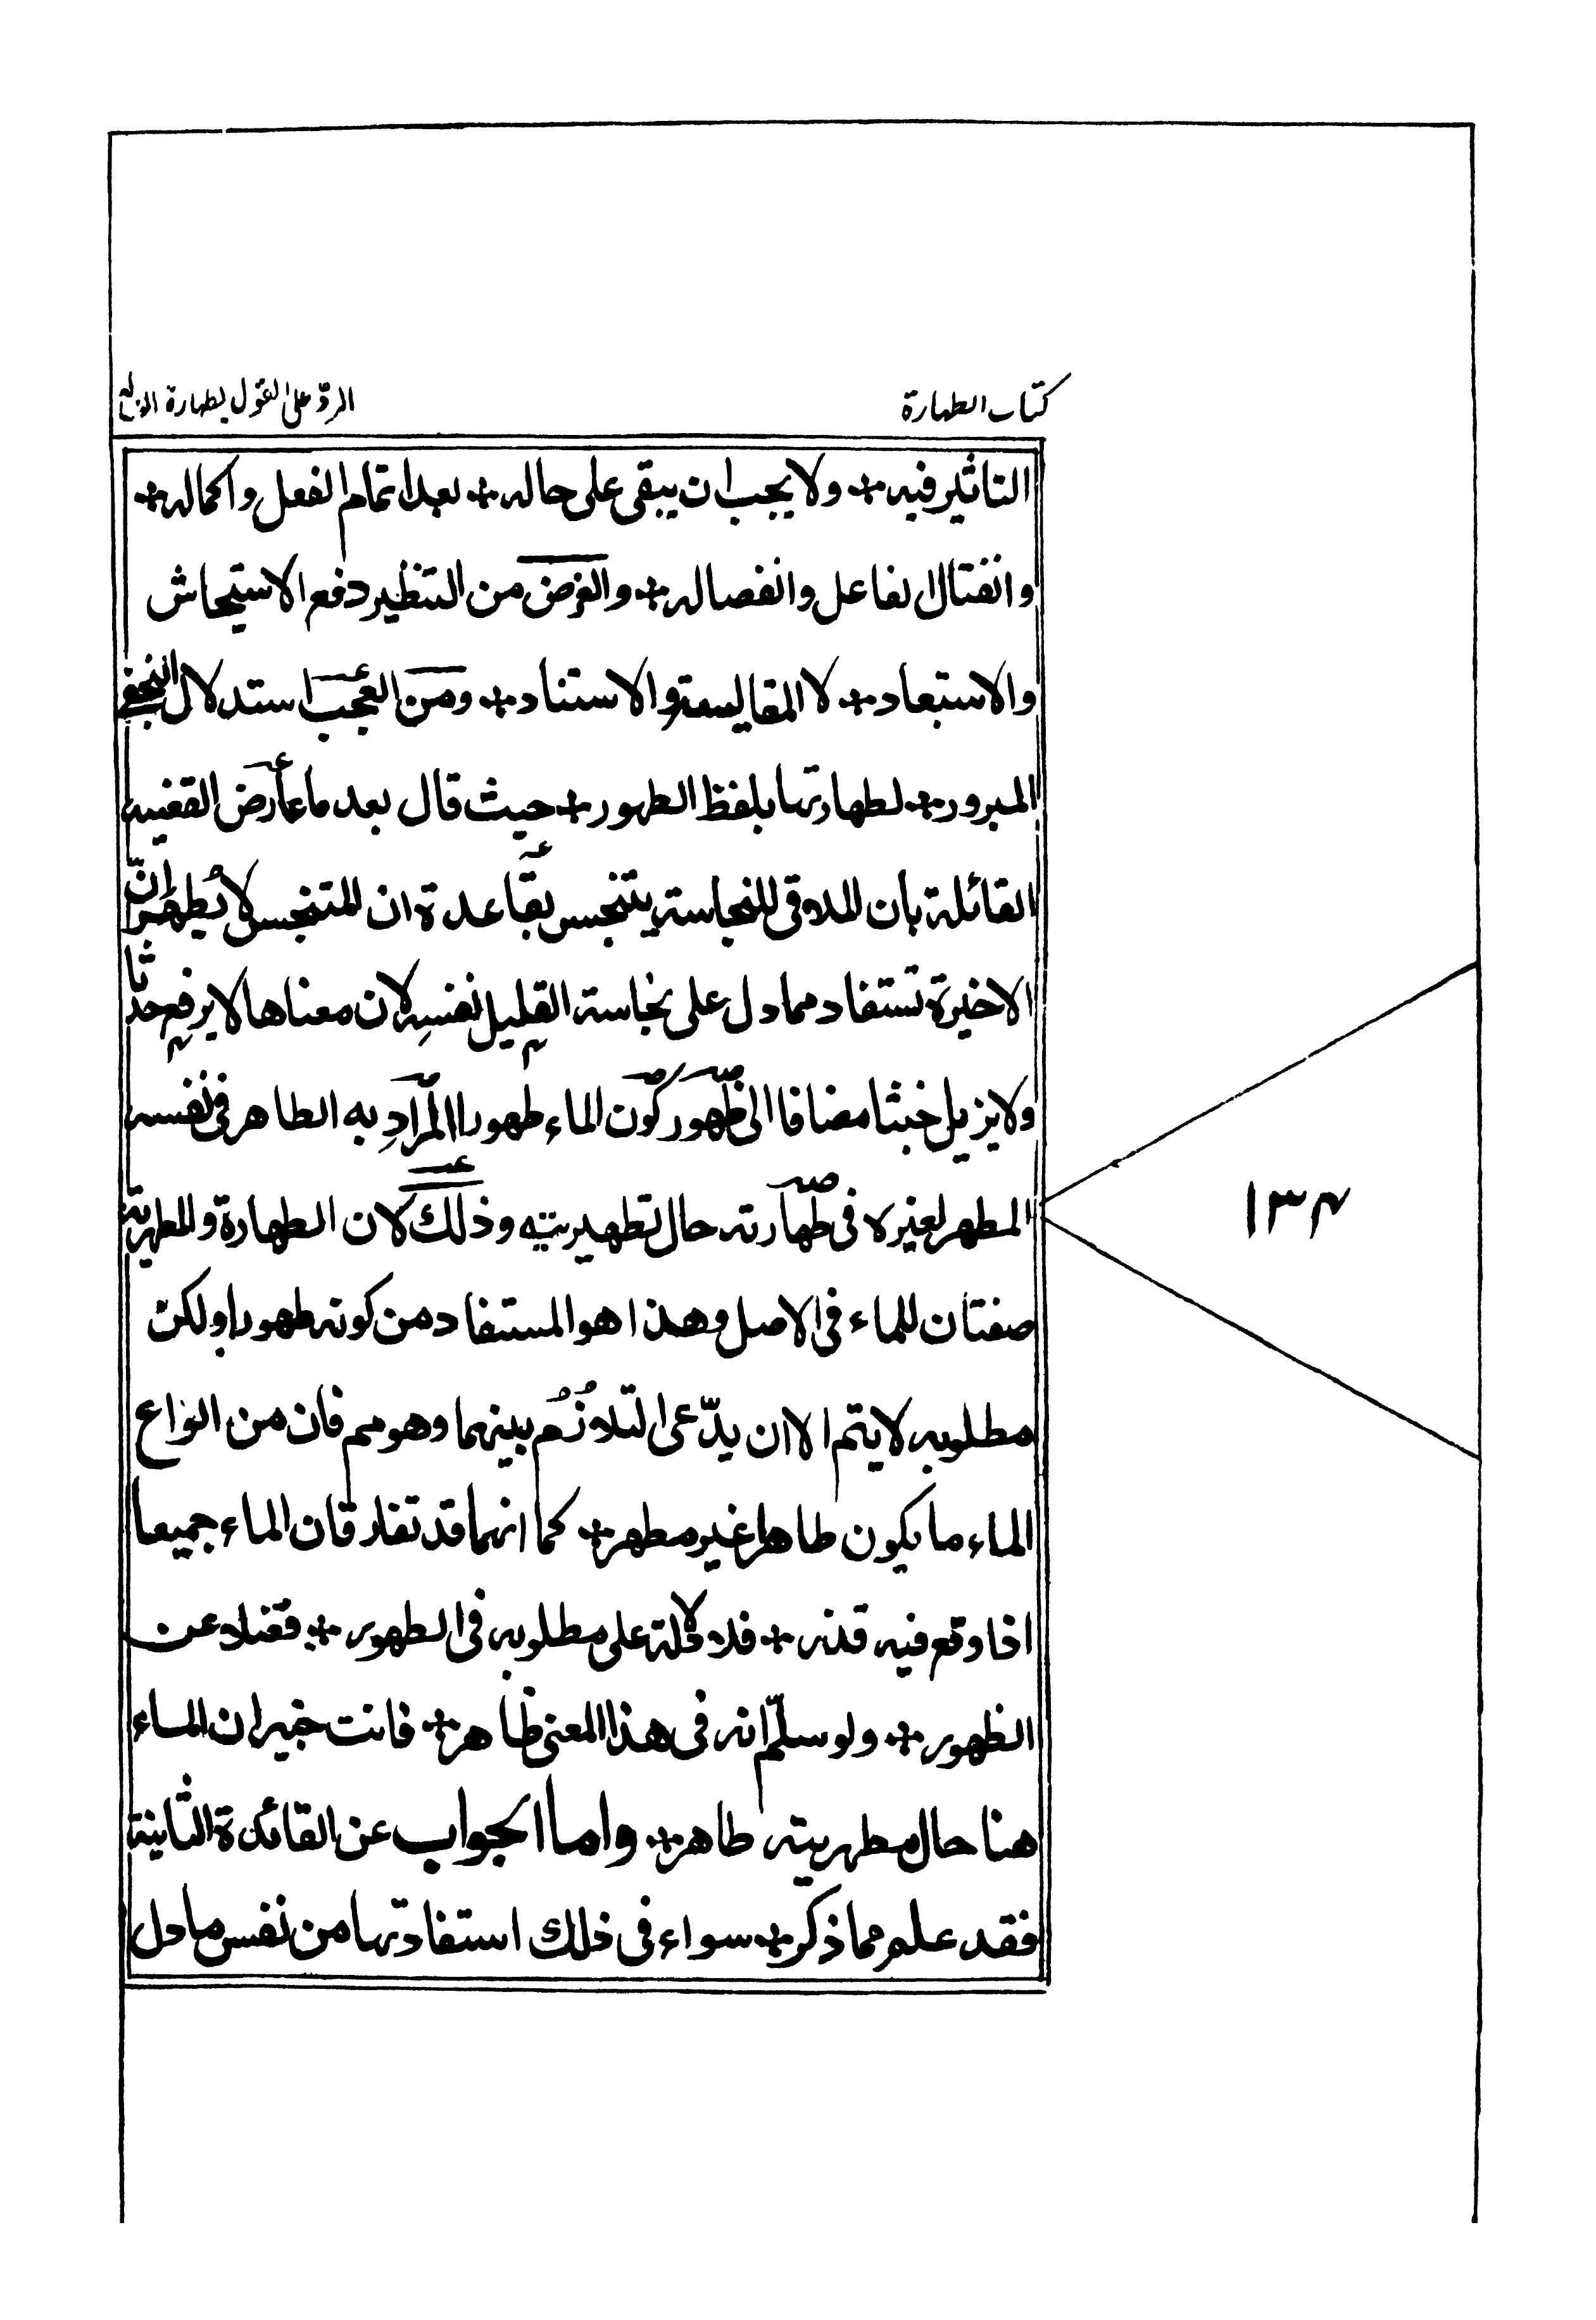 كتاب الطهارة
الردّ على القول بطهارة الغسالة
التاثير فيه ولا يجب ان يبقى على حاله بعد اتمام الفعل واكماله
وانفتال الفاعل وانفصاله والغرض من التنظير دفع الاستيحاش
والاستبعاد لا المقايسة والاستناد ومن العجب استدلال النجفي
المبرور لطهارتها بلفظ الطهور حيث قال بعد ما عارض القضية
القائلة بأن الملاقي للنجاسة يتنجس بقاعدة ان المتنجس لا يُطهر انّ
الاخيرة تستفاد مما دل على نجاسة القليل بنفسه لان معناها لا يرفع حدثا
ولا يزيل خبثا مضافا الى ظهور كون الماء طهورا المراد به الطاهر في نفسه
المطهر لغيره في طهارته حال تطهيريته وذلك لان الطهارة والمطهرية
صفتان للماء في الاصل وهذا هو المستفاد من كونه طهورا ولكنّ
مطلوبه لا يتم الا ان يدّعى التلازُم بينهما وهو مم فان من انواع
الماء ما يكون طاهرا غير مطهر كما انهما قد تفارقان الماء جميعا
اذا وقع فيه قذر فلا دلالة على مطلوبه في الطهور فضلا عن
الظهور ولو سلّم انه في هذا المعنى ظاهر فانت خبير ان الماء
هنا حال مطهريته طاهر واما الجواب عن القائدة الثانية
فقد علم مما ذكر سواء في ذلك استفادتها من نفس ما دل
١٣٤